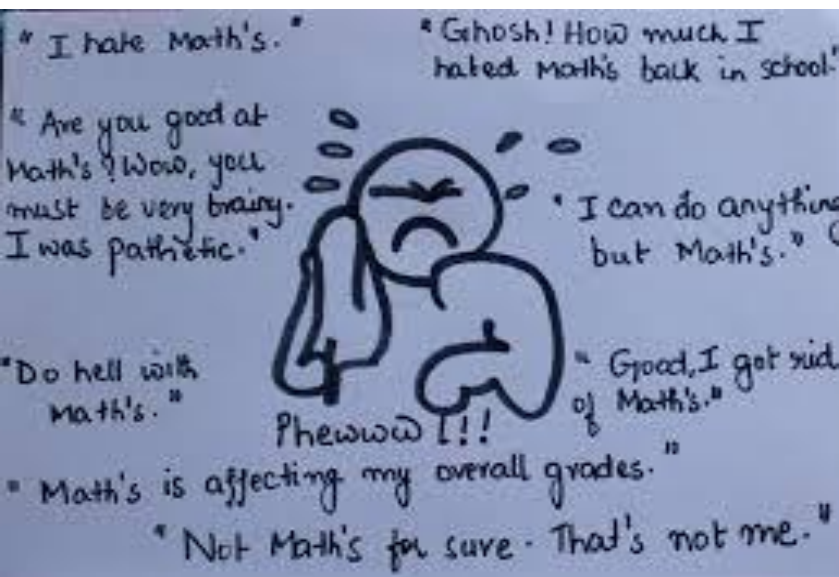 " I hate Math's. "
" Ghosh! How much I
hated Math's back in school"
" Are you good at
Math's? Wow, you
must be very brainy.
I was pathetic."
" I can do anything
but Math's."
"Do hell with
Math's."
" Good, I got rid
of Math's."
Phewww!!!
" Math's is affecting my overall grades."
" Not Math's for sure. That's not me."